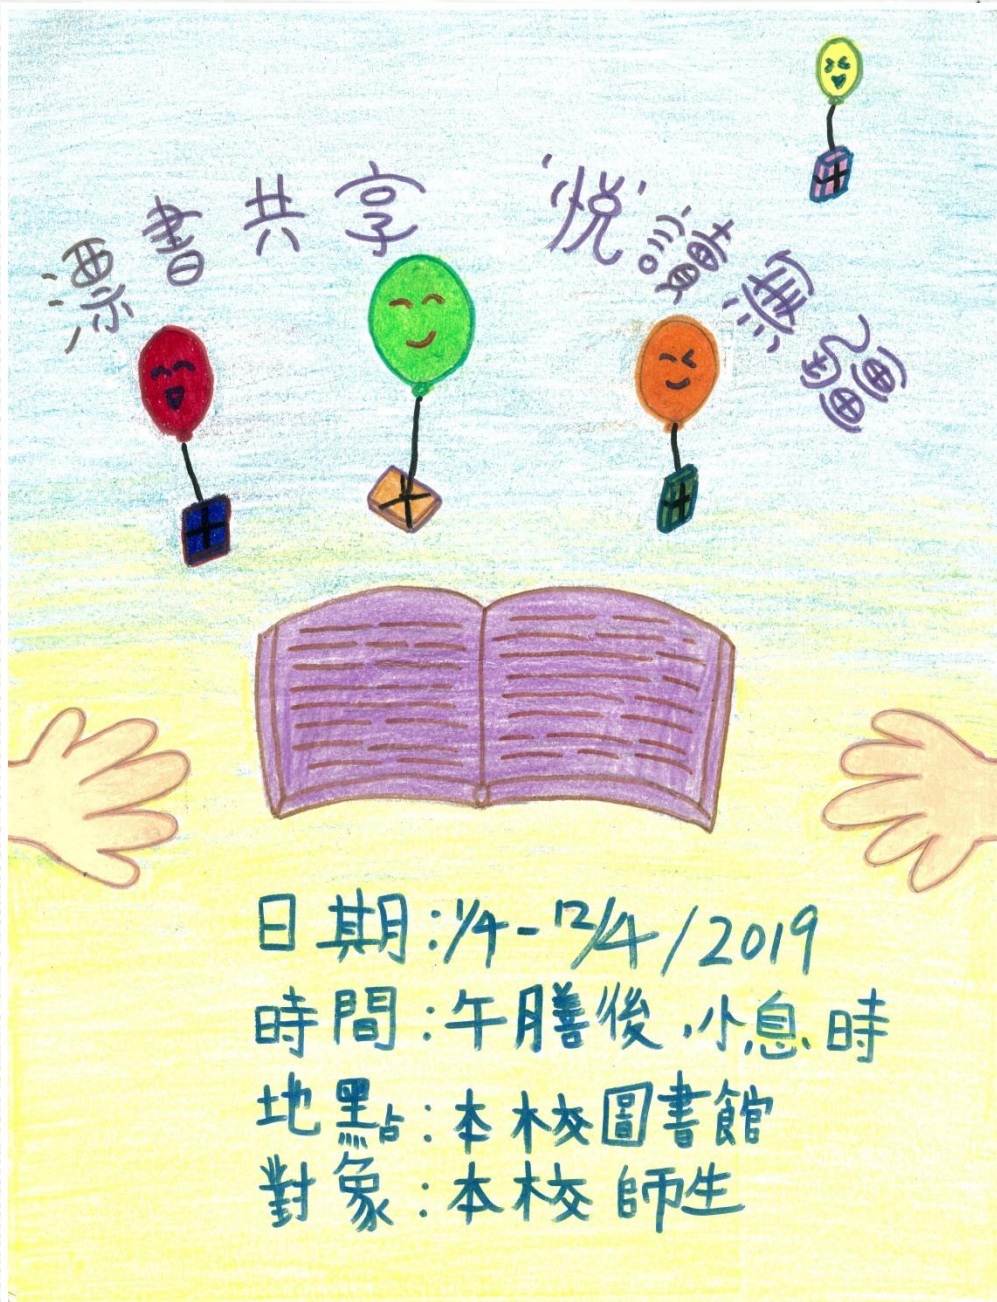 漂書共享 '悅'讀無疆
日期:1/4-12/4/2019
時間:午膳後、小息時
地點:本校圖書館
對象:本校師生